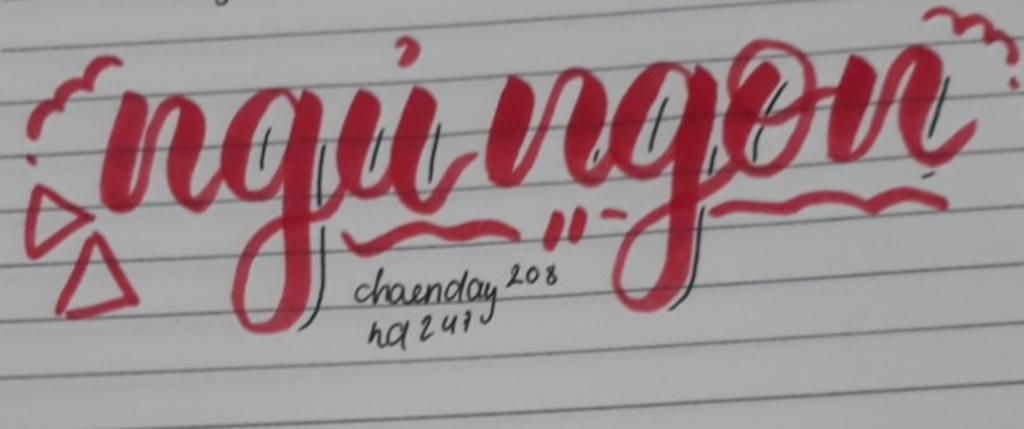 ngủ ngon
chaenday 208
hd 247